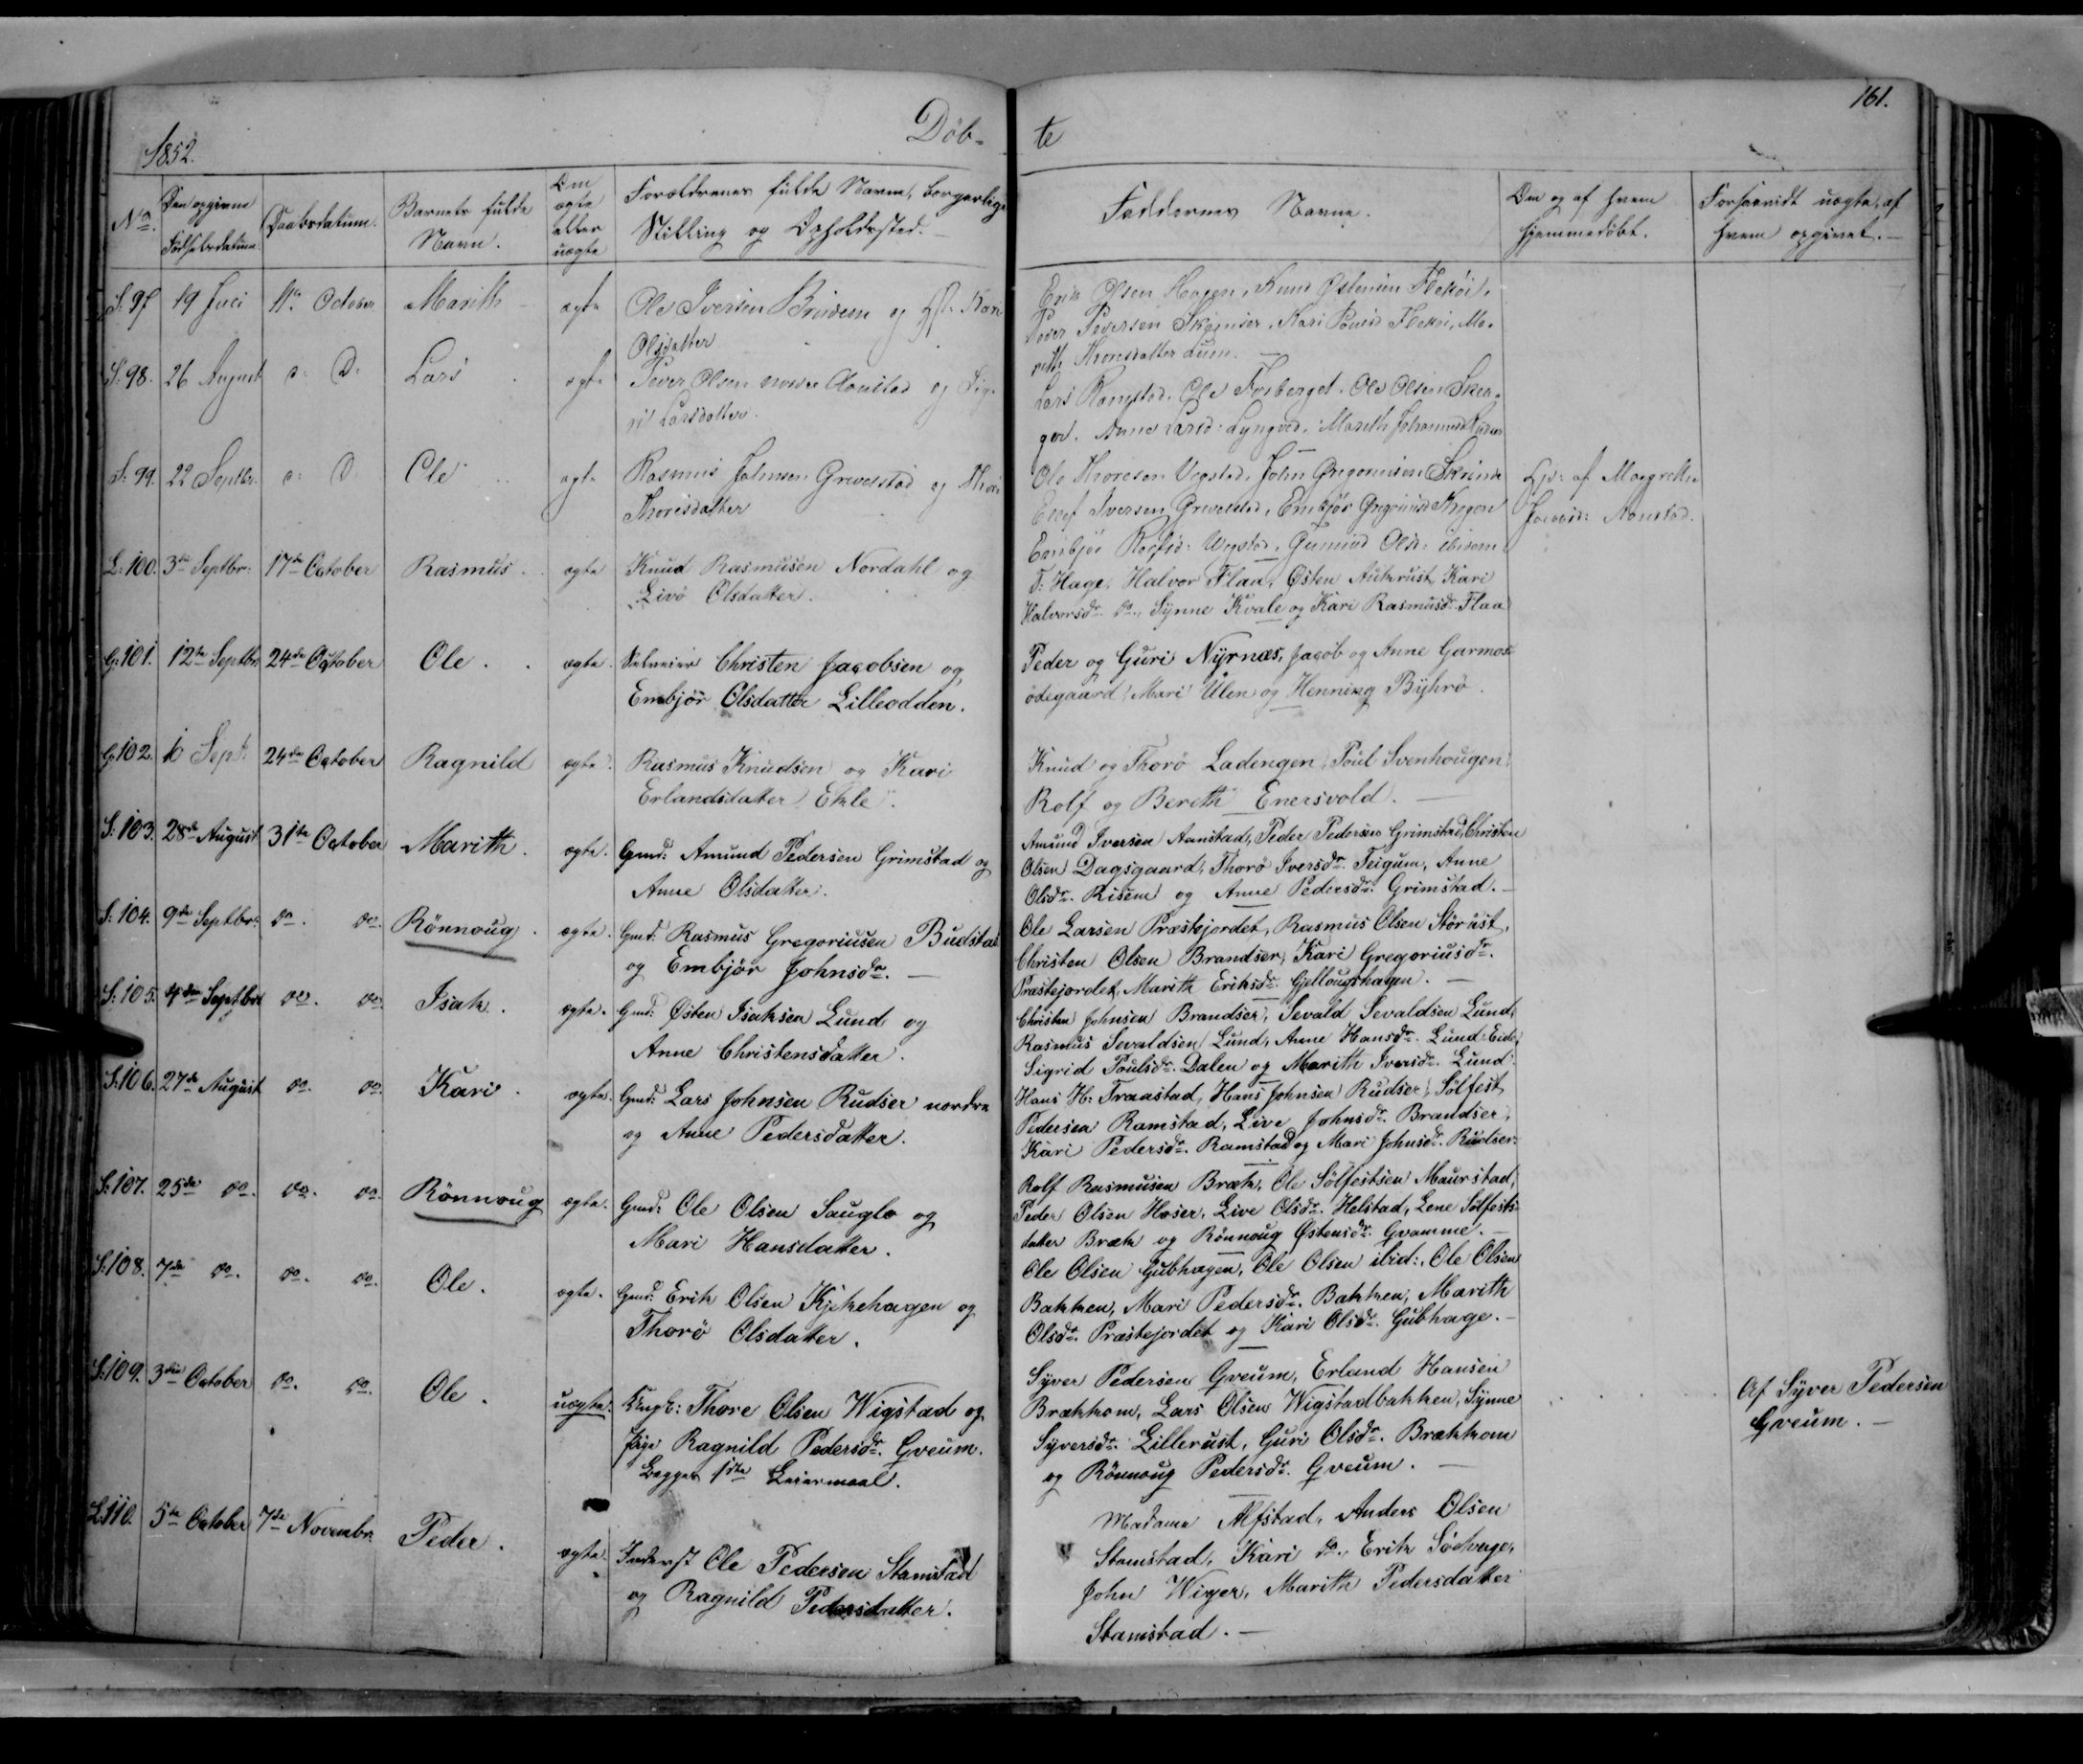 161.
Döb-
te
1852.
No.
Den opgivne
Födselsdatum.
Daabsdatum.
Barnets fulde
Navn.
Om
ægte
eller
uægte
Forældrenes fulde Navne, borgerlige
Stilling og Opholdssted.
Faddernes Navne.
Om og af hvem
hjemmedöbt.
Forsaavidt uægte, af
hvem opgivet.
S: 97 19 Juli 11te October Marith ægte Ole Iversen og Hst. Kari
Olsdatter
Erik Olsen Hagen, Knud Östensen Fleköi,
Peder Pedersen Skjenser, Kari Fleköi, Ma-
rith
S: 98. 26 August d: D: Lars ægte Olsen nordre Aanstad og Sig-
rid Larsdatter.
Lars Ole Forberget. Ole Olsen Skea-
ger. Anne Larsd: Marith
S: 99. 22 Septbr. d: D Ole ægte Rasmus Johnsen Grevelstad og
Thoresdatter
Ole Thoresen Vegstad, John Gregoriusen
Iversen Grevelstad, Embjör
Embjör Vegstad, Gunnild Olsd: ibidem
Hj: af Margrethe
Aanstad.
L: 100. 3die Septbr: 17de October Rasmus. ægte Knud Rasmusen Nordahl og
Livö Olsdatter.
T: Hage, Halvor Flaa, Östen Aukrust, Kari
Halvorsdr. do., Synne Kvale og Kari Rasmusdr. Flaa
G: 101. 12te Septbr. 24de October Ole. ægte. Selveier Christen Jacobsen og
Embjör Olsdatter Lilleodden.
Peder og Guri Nyrnæs, Jacob og Anne Garmos-
ödegaard, Mari Ulen og Henning Byhrö.
G: 102. 10 Sept: 24de October Ragnild ægte. Rasmus Knudsen og Kari
Erlandsdatter Ekle.
Knud og Thorö Ladengen, Poul Svenhougen,
Rolf og Bereth Enersvold.
S: 103. 28de August 31te October Marith. ægte. Gmd: Amund Pedersen Grimstad og
Anne Olsdatter.
Amund Iversen Aanstad, Peder Pedersen Grimstad, Christen
Olsen Dagsgaard, Thorö Iversdr. Teigum, Anne
Olsdr. Risem og Anne Pedersdr. Grimstad.
S: 104. 9de Septbr: do. do. Rönnoug. ægte. Gmd: Rasmus Gregoriusen Budstad
og Embjör Johnsdr.
Ole Larsen Præstejordet, Rasmus Olsen Storust,
Christen Olsen Brandser, Kari Gregoriusdr.
Præstejordet, Marith Eriksdr. Gjellougshagen.
S: 105. 4de Septbr do. do. Isak. ægte. Gmd: Östen Isaksen Lund og
Anne Christensdatter.
Christen Johnsen Brandser, Sevald Sevaldsen Lund,
Rasmus Sevaldsen Lund, Anne Hansdr. Lund-Eide,
Sigrid Poulsdr. Dalen og Marith Iversdr. Lund.
S: 106. 27de August do. do. Kari. ægte. Gmd: Lars Johnsen Rudser nordre
og Anne Pedersdatter.
Hans H: Traastad, Hans Johnsen Rudser, Sölfest
Pedersen Ramstad, Live Johnsdr. Brandser,
Kari Pedersdr. Ramstad og Mari Johnsdr. Rudser.
S: 107. 25de do. do. do. Rönnoug ægte. Gmd: Ole Olsen Sauglo og
Mari Hansdatter.
Rolf Rasmusen Bræk, Ole Sölfestsen Maurstad,
Peder Olsen Hoser, Live Olsdr. Helstad, Lene Sölfests-
datter Bræk og Rönnoug Östensdr. Gvamme.
S: 108. 7de do. do. do. Ole. ægte. Gmd: Erik Olsen Kjekehagen og
Thorö Olsdatter.
Ole Olsen Gubhagen, Ole Olsen ibid:, Ole Olsen
Bakken, Mari Pedersdr. Bakken, Marith
Olsdr. Præstejordet og Kari Olsdr. Gubhage.
S: 109. 3die October do. do. Ole. uægte. Ungk: Thore Olsen Wigstad og
Pige Ragnild Pedersdr. Gveum.
Begges 1ste Leiermaal.
Syver Pedersen Gveum, Erland Hansen
Brækkom, Lars Olsen Wigstadbakken, Synne
Syversdr. Lillerust, Guri Olsdr. Brækkom
og Rönnoug Pedersdr. Gveum.
Af Syver Pedersen
Gveum.
L: 110. 5te October 7de Novembr. Peder. ægte. Inderst Ole Pedersen Stamstad
og Ragnild Pedersdatter.
Madame Alfstad, Anders Olsen
Stamstad, Kari do., Erik
John Wiger, Marith Pedersdatter
Stamstad.